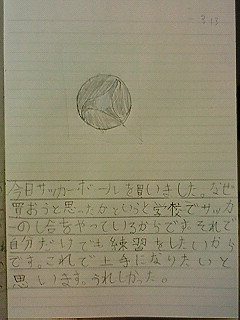 3.13
今日サッカーボールを買いました。なぜ
買おうと思ったかというと学校でサッカ
ーのし合をやっているからです。それで
自分だけでも練習をしたいから
です。これで上手になりたいと
思います。うれしかった。